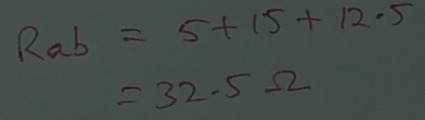 Rab = 5+15+12.5
= 32.5 Ω